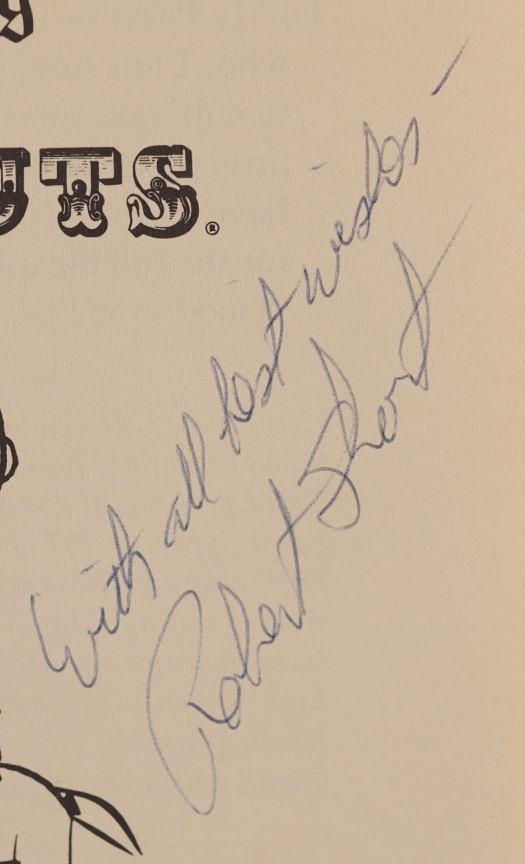 g
UTS.®
With all best wishes —
Robert Short